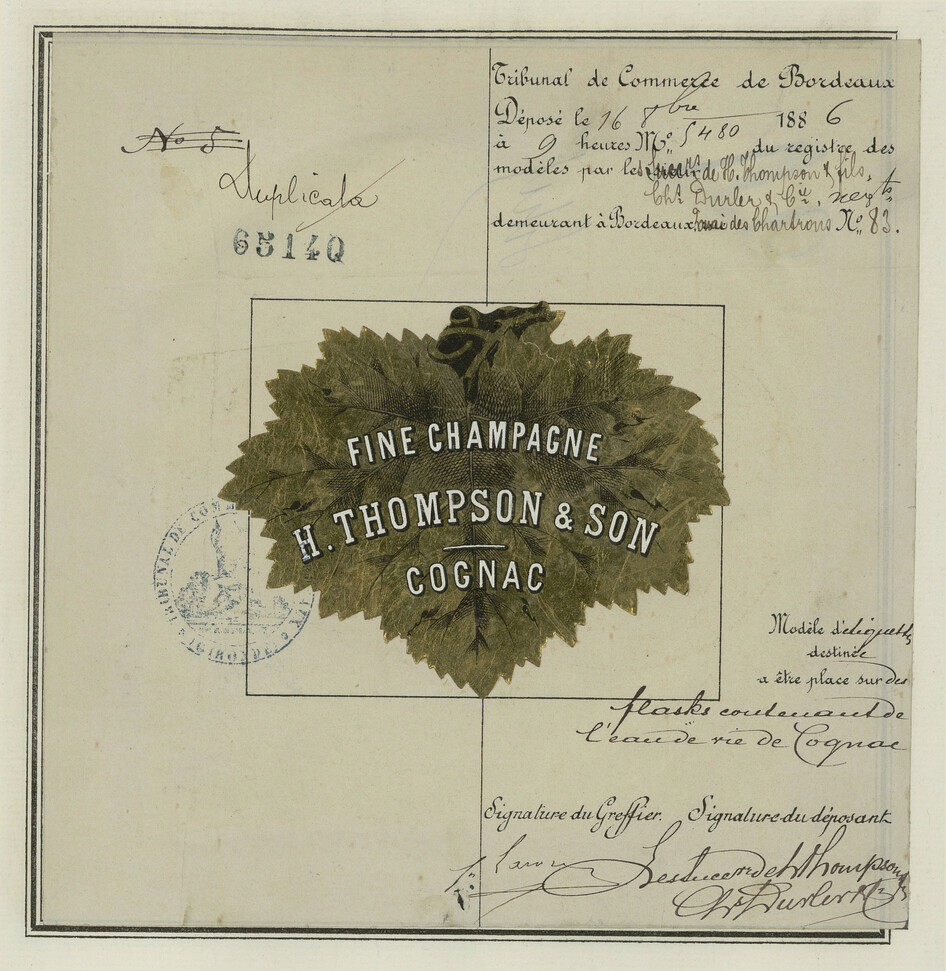 No 5
Duplicata
65140
Tribunal de Commerce de Bordeaux
Déposé le 16 8bre 1886
à 9 heures Mo. 5480 du registre des
modèles par les succrs de H. Thompson & fils,
Chs Durler & Cie, negts
demeurant à Bordeaux, quai des Chartrons No. 83.
FINE CHAMPAGNE
H. THOMPSON & SON
COGNAC
TRIBUNAL DE COM
(GIRONDE)
Modèle d'étiquette
destinée
a être place sur des
flasks contenant de
l'eau de vie de Cognac
Signature du Greffier. Signature du déposant
Les succrs de H Thompson
Chs Durler & Cie